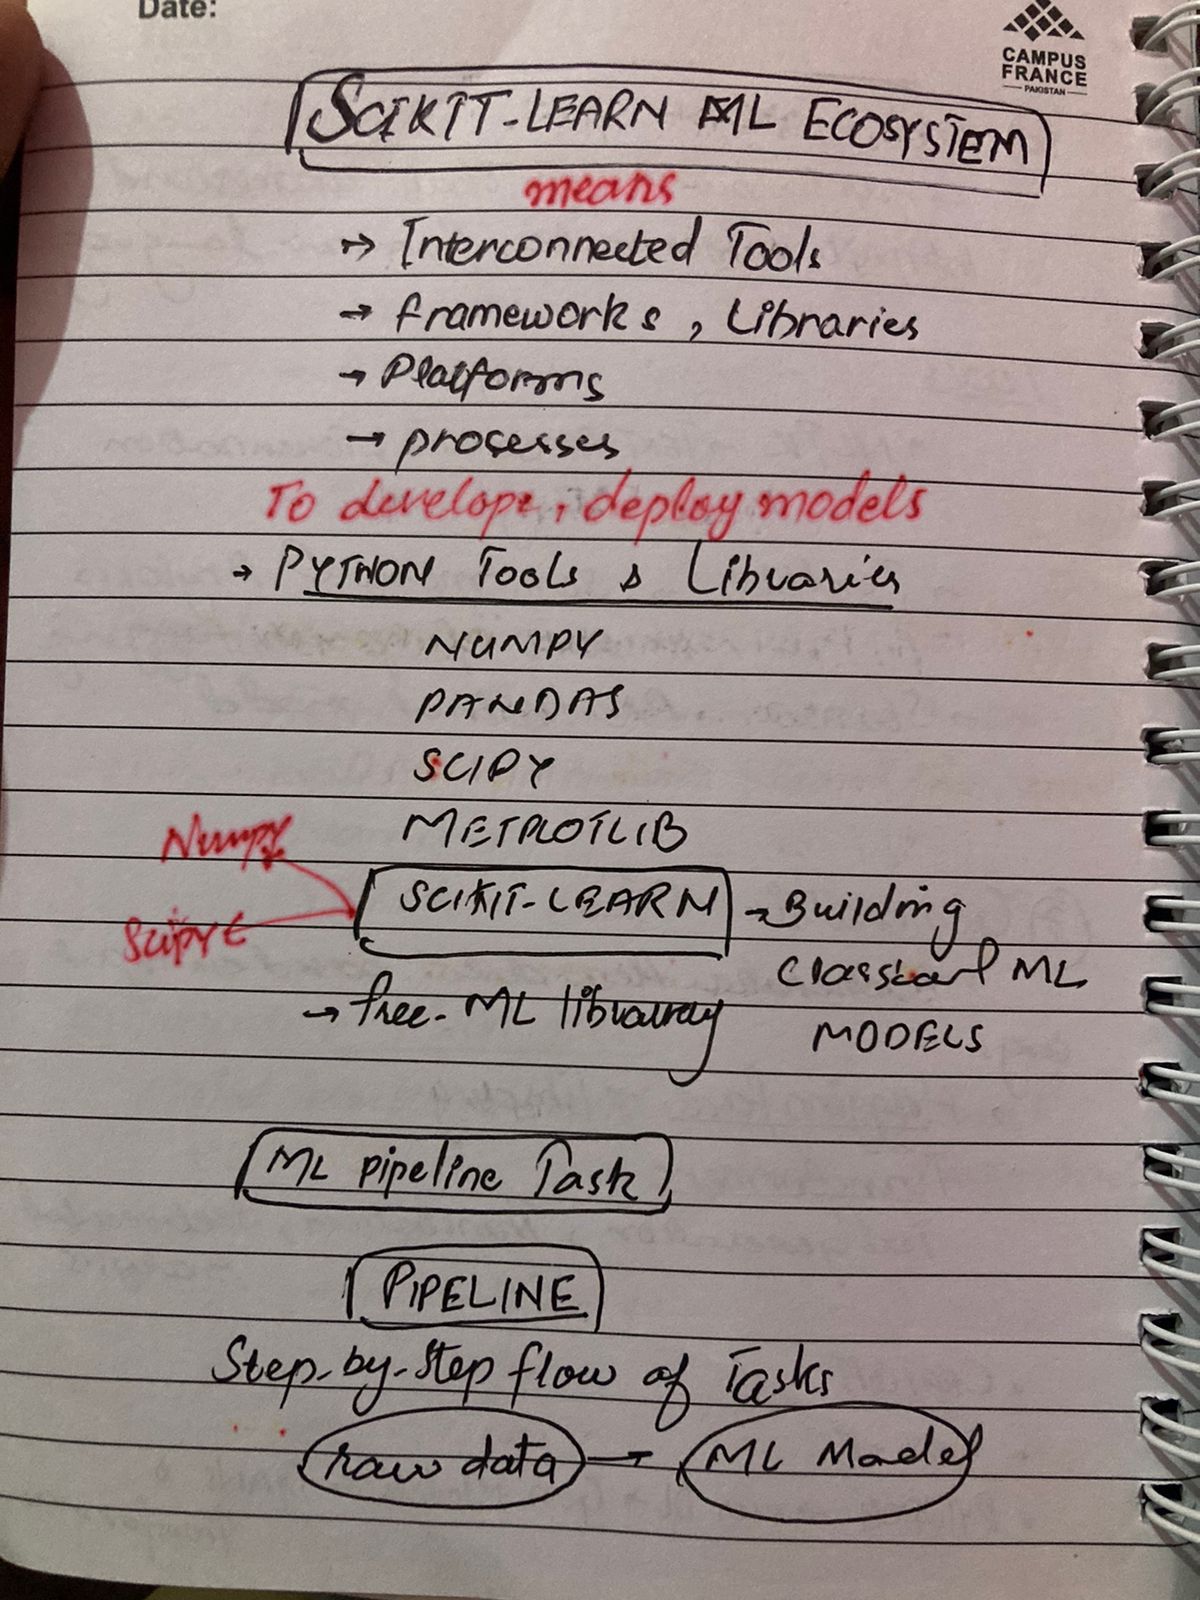 Date:
CAMPUS
FRANCE
PAKISTAN
SCIKIT-LEARN ML ECOSYSTEM
means
→ Interconnected Tools
→ frameworks, Libraries
→ Platforms
→ processes
To develope, deploy models
→ PYTHON Tools & Libraries
NUMPY
PANDAS
SCIPY
METPLOTLIB
Numpy
SCIKIT-LEARN → Building
Scipy
Classical ML
→ free-ML libraray
MODELS
ML pipeline Task
PIPELINE
Step-by-step flow of Tasks
raw data → ML Model